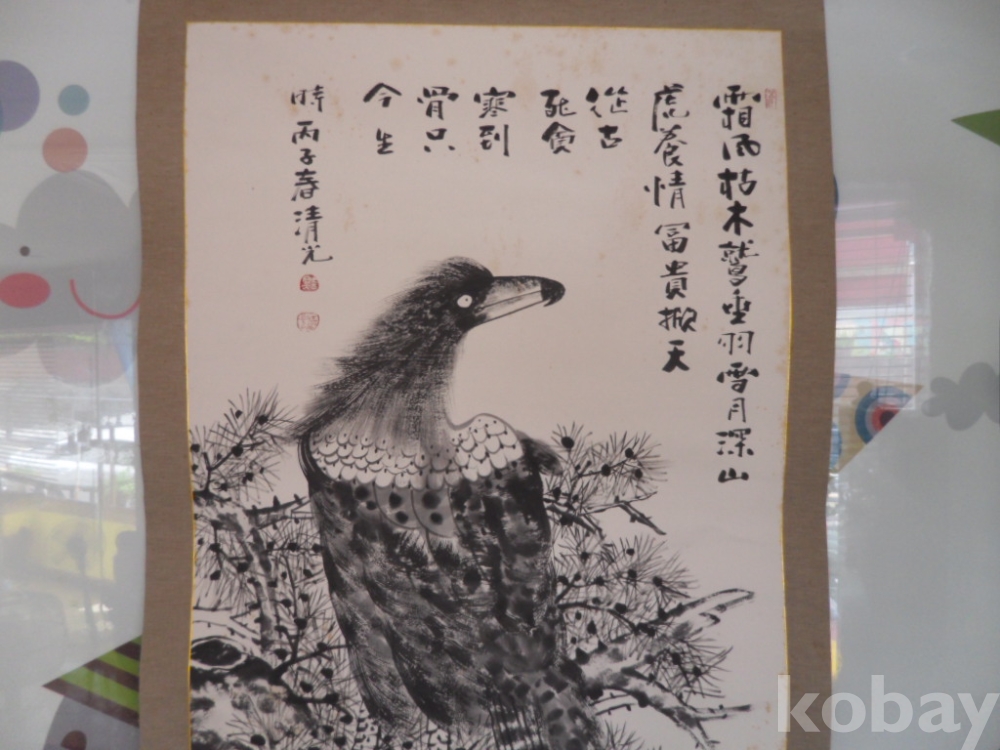 霜風枯木鷲垂羽雪月深山
虎養情冨貴掀天
從古
死貧
寒到
骨只
今生
時丙子春清光
kobay